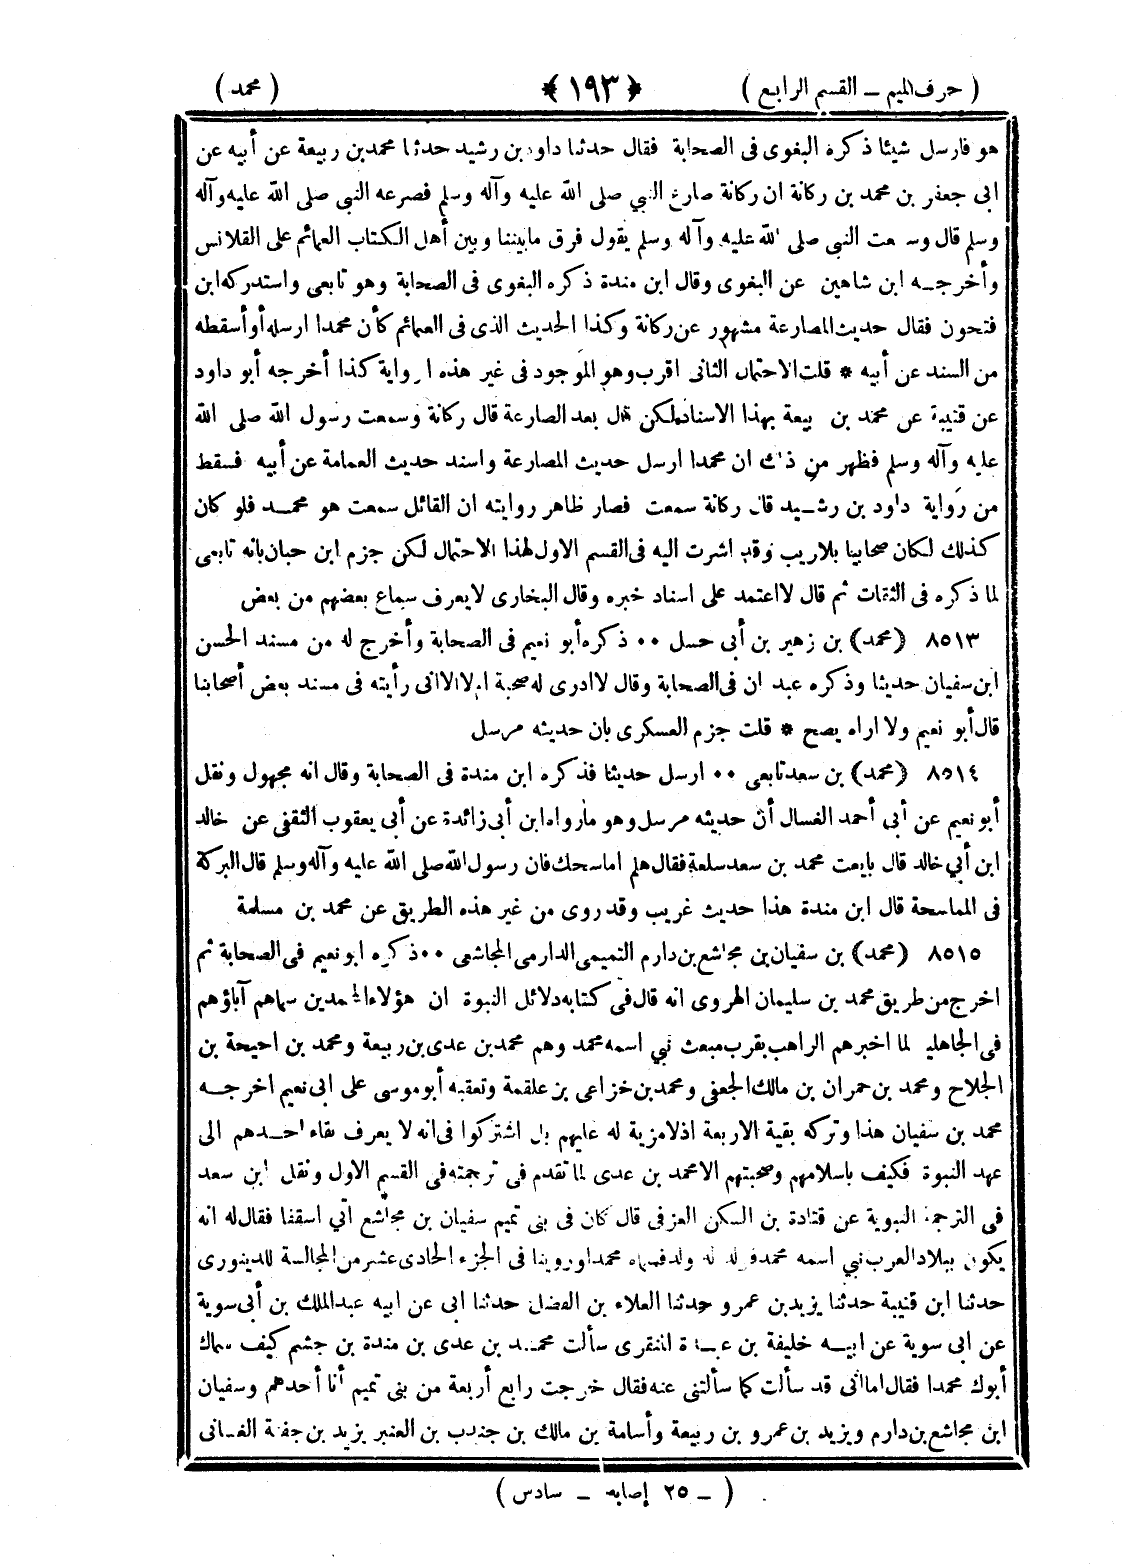 ( حرف الميم ــ القسم الرابع )
﴿ ١٩٣ ﴾
( محمد )
هو فارسل شيئا ذكره البغوى فى الصحابة فقال حدثنا داود بن رشيد حدثنا محمدبن ربيعة عن أبيه عن
ابى جعفر بن محمد بن ركانة ان ركانة صارع النبي صلى الله عليه وآله وسلم فصرعه النبى صلى الله عليه وآله
وسلم قال وسمعت النبى صلى الله عليه وآله وسلم يقول فرق مابيننا وبين أهل الكتاب العمائم على القلانس
وأخرجـه ابن شاهين عن البغوى وقال ابن مندة ذكره البغوى فى الصحابة وهو تابعى واستدركه ابن
فتحون فقال حديث المصارعة مشهور عن ركانة وكذا الحديث الذى فى العمائم كأن محمدا ارسله أو أسقطه
من السند عن أبيه * قلت الاحتمال الثانى اقرب وهو الموجود فى غير هذه الرواية كذا أخرجه أبو داود
عن قتيبة عن محمد بن ربيعة بهذا الاسناد لكن قال بعد الصارعة قال ركانة وسمعت رسول الله صلى الله
عليه وآله وسلم فظهر من ذلك ان محمدا ارسل حديث المصارعة واسند حديث العمامة عن أبيه فسقط
من رواية داود بن رشـيد قال ركانة سمعت فصار ظاهر روايته ان القائل سمعت هو محمـد فلو كان
كذلك لكان صحابيا بلاريب وقد اشرت اليه فى القسم الاول لهذا الاحتمال لكن جزم ابن حبان بانه تابعى
لما ذكره فى الثقات ثم قال لا اعتمد على اسناد خبره وقال البخارى لايعرف سماع بعضهم من بعض
٨٥١٣ (محمد) بن زهير بن أبى حسل ٠٠ ذكره أبو نعيم فى الصحابة وأخرج له من مسند الحسن
ابن سفيان حديثا وذكره عبدان فى الصحابة وقال لا ادرى له صحبة ام لا الا انى رأيته فى مسند بعض أصحابنا
قال أبو نعيم ولا اراه يصح * قلت جزم العسكرى بان حديثه مرسل
٨٥١٤ (محمد) بن سعد تابعى ٠٠ ارسل حديثا فذكره ابن مندة فى الصحابة وقال انه مجهول ونقل
أبو نعيم عن أبى أحمد العسال أن حديثه مرسل وهو مارواه ابن أبى زائدة عن أبى يعقوب الثقفى عن خالد
ابن أبي خالد قال بايعت محمد بن سعد سلعة فقال هلم اماسحك فان رسول الله صلى الله عليه وآله وسلم قال البركة
فى المماسحة قال ابن مندة هذا حديث غريب وقد روى من غير هذه الطريق عن محمد بن مسلمة
٨٥١٥ (محمد) بن سفيان بن مجاشع بن دارم التميمى الدارمى المجاشعى ٠٠ ذكره ابو نعيم فى الصحابة ثم
اخرج من طريق محمد بن سليمان الهروى انه قال فى كتابه دلائل النبوة ان هؤلاء المحمدين سماهم آباؤهم
فى الجاهلية لما اخبرهم الراهب بقرب مبعث نبي اسمه محمد وهم محمدبن عدى بن ربيعة ومحمد بن احيحة بن
الجلاح ومحمد بن حمران بن مالك الجعفى ومحمدبن خزاعى بن علقمة وتعقبه أبو موسى على ابى نعيم اخرجـه
محمد بن سفيان هذا وتركه بقية الاربعة اذ لامزية له عليهم بل اشتركوا فى انه لا يعرف بقاء احـدهم الى
عهد النبوة فكيف باسلامهم وصحبتهم الا محمد بن عدى لما تقدم فى ترجمته فى القسم الاول ونقل ابن سعد
فى الترجمة النبوية عن قتادة بن السكن العرفى قال كان فى بنى تميم سفيان بن مجاشع أتى اسقفا فقال له انه
يكون ببلاد العرب نبي اسمه محمد فولد له ولد فسماه محمدا وروينا فى الجزء الحادى عشر من المجالسة للدينورى
حدثنا ابن قتيبة حدثنا يزيدبن عمرو حدثنا العلاء بن الفضل حدثنا ابى عن ابيه عبدالملك بن أبى سوية
عن ابى سوية عن ابيـه خليفة بن عبدة المنقرى سألت محمد بن عدى بن مندة بن جشم كيف سماك
أبوك محمدا فقال اما انى قد سألت كما سألتنى عنه فقال خرجت رابع أربعة من بنى تميم أنا أحدهم وسفيان
ابن مجاشع بن دارم ويزيد بن عمرو بن ربيعة وأسامة بن مالك بن جندب بن العنبر يزيد بن جفنة الغسانى
( ــ ٢٥ إصابه ــ سادس )